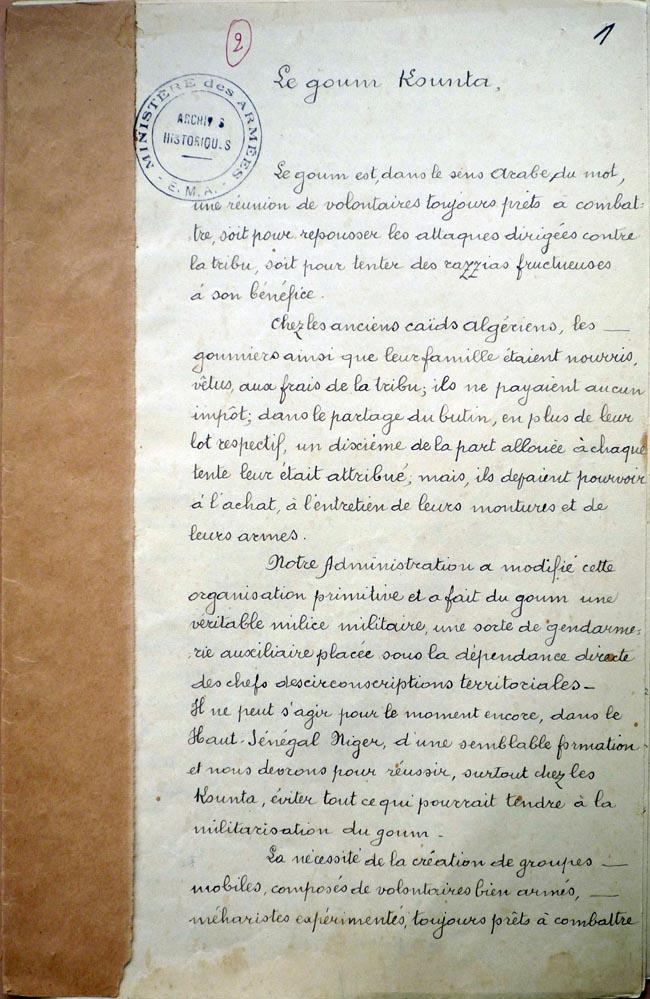 2
1
MINISTÈRE des ARMÉES
ARCHIVES
HISTORIQUES
- E.M.A. -
Le goum Kounta,
Le goum est, dans le sens Arabe du mot,
une réunion de volontaires toujours prêts à combat-
tre, soit pour repousser les attaques dirigées contre
la tribu, soit pour tenter des razzias fructueuses
à son bénéfice.
Chez les anciens caïds Algériens, les —
goumiers ainsi que leur famille étaient nourris,
vêtus, aux frais de la tribu; ils ne payaient aucun
impôt; dans le partage du butin, en plus de leur
lot respectif, un dixième de la part allouée à chaque
tente leur était attribué; mais, ils devaient pourvoir
à l'achat, à l'entretien de leurs montures et de
leurs armes.
Notre Administration a modifié cette
organisation primitive et a fait du goum une
véritable milice militaire, une sorte de gendarme-
rie auxiliaire placée sous la dépendance directe
des chefs des circonscriptions territoriales —
Il ne peut s'agir pour le moment encore, dans le
Haut-Sénégal Niger, d'une semblable formation
et nous devrons pour réussir, surtout chez les
Kounta, éviter tout ce qui pourrait tendre à la
militarisation du goum -
La nécessité de la création de groupes —
mobiles, composés de volontaires bien armés, —
méharistes expérimentés, toujours prêts à combattre